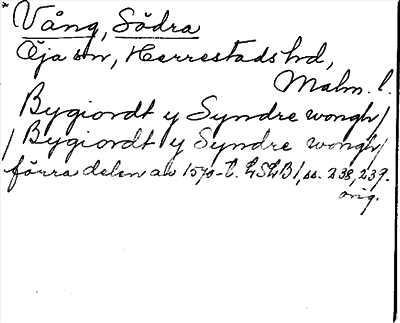 * Vång, Södra
Öja sn, Herrestads hd,
Malm. l.
Bygiordt y Syndre wongh/
/Bygiordt y Syndre wongh/
förra delen av 1570-t. LSLB 1, ss. 238, 239.
orig.